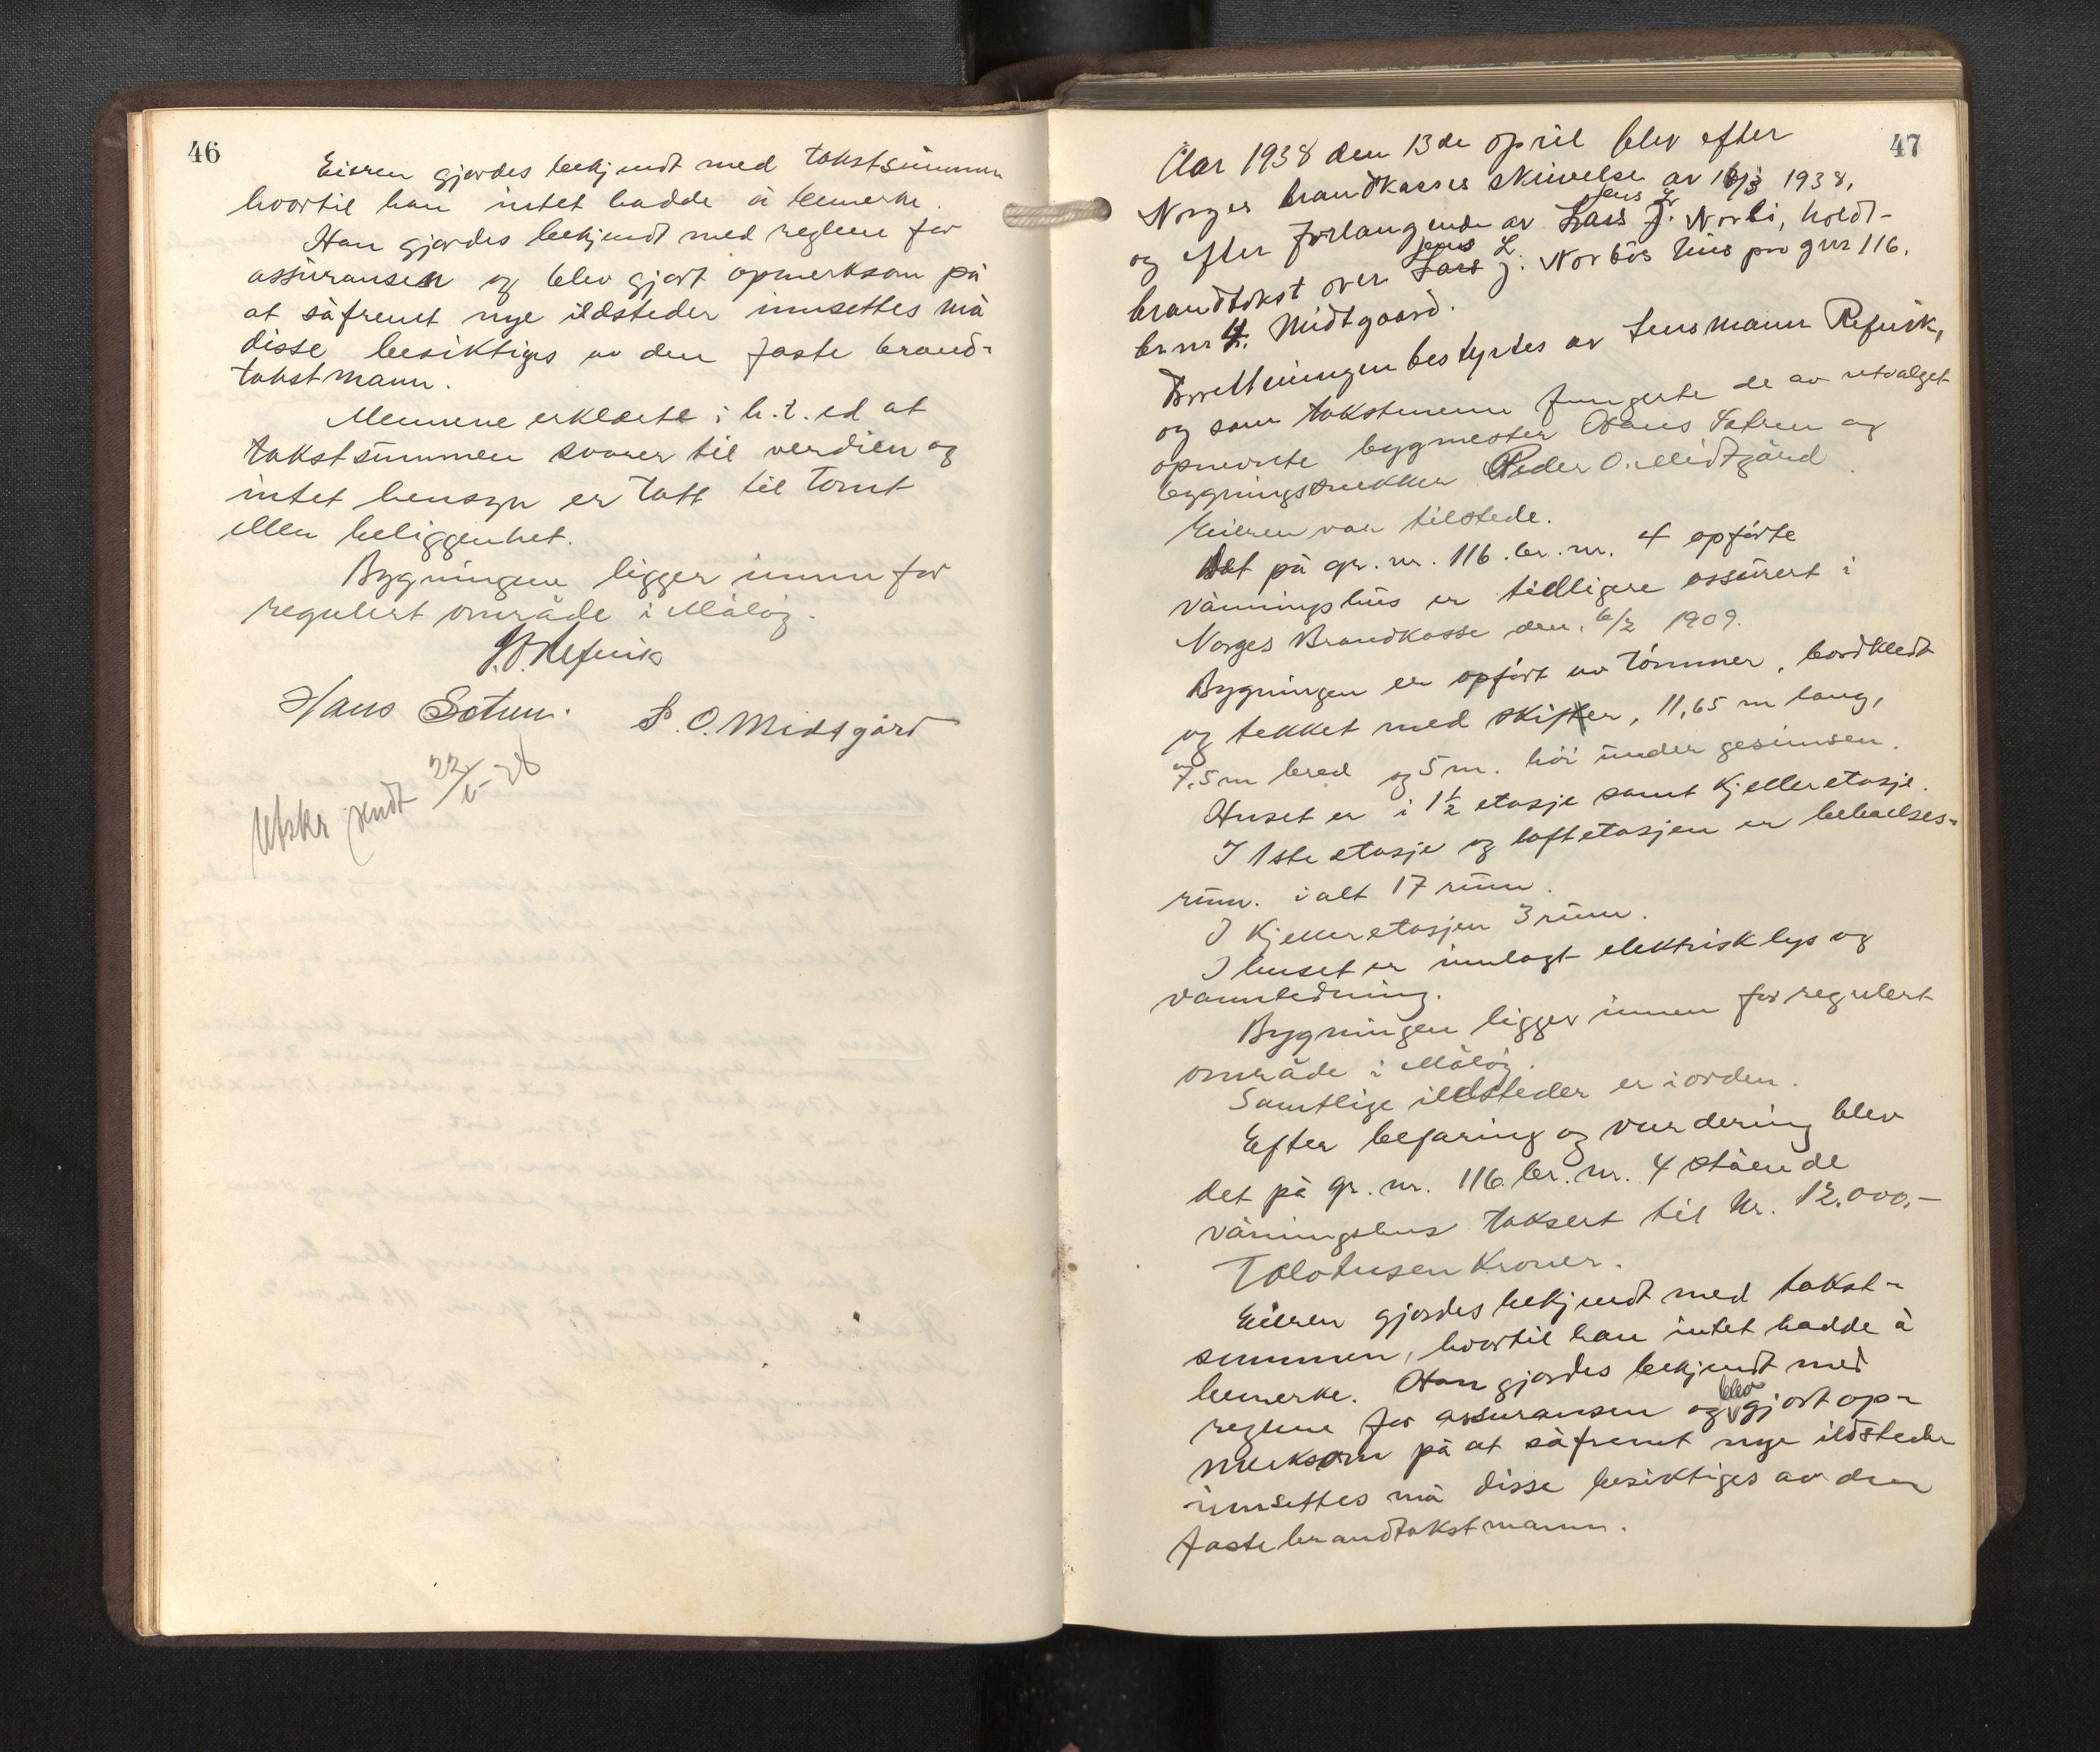 46
Eieren gjordes bekjendt med takstsummen
hvortil han intet hadde å bemerke.
Han gjordes bekjendt med reglene for
assuransen og blev gjort opmerksom på
at såfremt nye ildsteder innsettes må
disse besiktiges av den faste brand-
takstmann.
Mennene erklærte i h.t. ed at
takstsummen svarer til verdien og
intet hensyn er tatt til tomt
eller beliggenhet.
Bygningen ligger innen for
regulert område i Måløy.
Hans Sætren. P. O. Midtgård
Utskr sendt 22/5-38
47
Aar 1938 den 13de april blev efter
Norges brandkasses skrivelse av 1938,
Jens L
og efter forlangende av Lars J. Norbö, holdt
Jens L
brandtakst over Lars J. Norbös hus på gnr 116.
br nr 4. Midtgaard.
Forretningen bestyrtes av Lensmann Refvik,
og som takstmenn fungerte de av utvalget
opnevnte bygmester Hans Sætren og
bygningssnekker Peder O. Midtgård.
Eieren var tilstede.
Det på gr. nr. 116. br. nr. 4 opførte
våningshus er tidligere assurert i
Norges Brandkasse den. 6/2 1909.
Bygningen er opført av tömmer, bordkledt
og tekket med skifer, 11,65 m lang,
7,5 m bred og 5 m. höi under gesimsen.
Huset er i 1½ etasje samt kjelleretasje.
I 1ste etasje og loftetasjen er beboelses-
rum. ialt 17 rum.
I kjelleretasjen 3 rum.
I huset er innlagt elektrisk lys og
vannledning.
Bygningen ligger innen for regulert
område i Måløy.
Samtlige ildsteder er i orden.
Efter befaring og vurdering blev
det på gr. nr. 116 br. nr. 4 stående
våningshus taksert til kr. 12.000,-
Tolvtusen kroner.
Eieren gjordes bekjendt med takst-
summen, hvortil han intet hadde å
bemerke. Han gjordes bekjendt med
blev
reglene for assuransen og gjort op-
merksom på at såfremt nye ildsteder
innsettes må disse besiktiges av den
faste brandtakstmann.